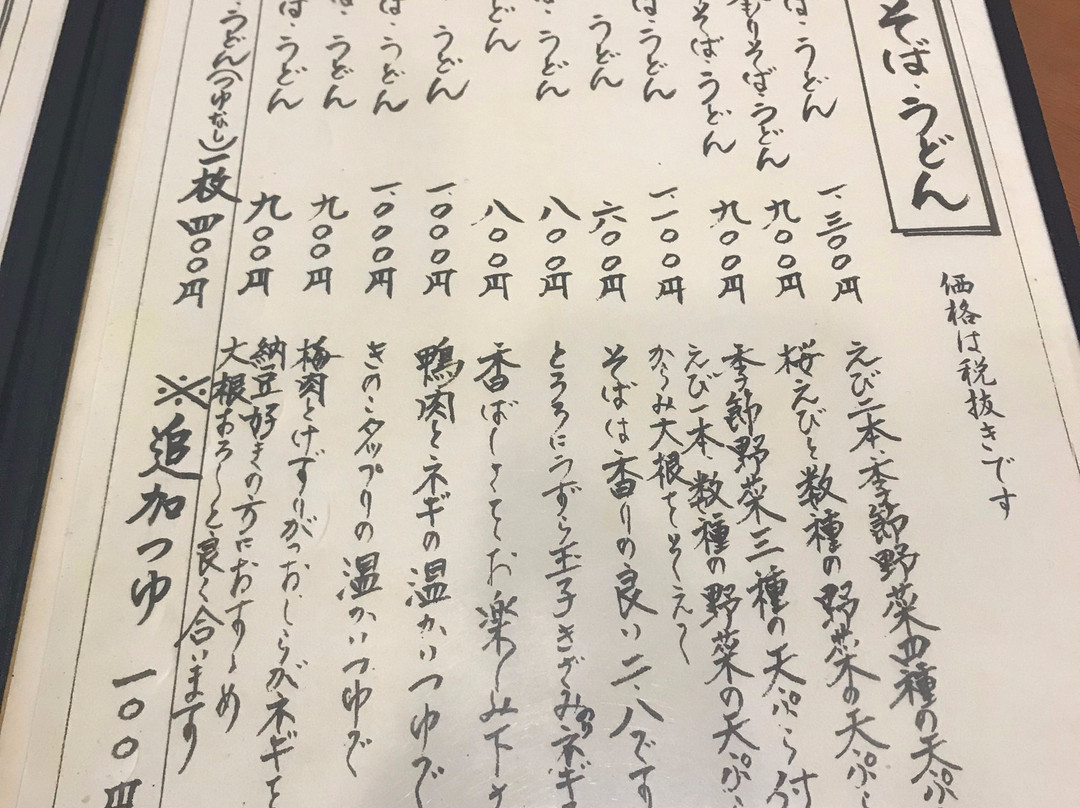 そば・うどん
価格は税抜きです
は・うどん 一、三〇〇円 えび二本、季節野菜四種の天ぷ
りそば・うどん 九〇〇円 桜えびと数種の野菜の天ぷら
そば・うどん 九〇〇円 季節野菜三種の天ぷら付
えび一本、数種の野菜の天ぷら
は・うどん 一、一〇〇円 からみ大根をそえて
うどん 六〇〇円 そばは香りの良い二・八です
は・うどん 八〇〇円 とろろにうずら玉子きざみのりネギ
どん 八〇〇円 香ばしさをお楽しみ下さ
うどん 一、〇〇〇円 鴨肉とネギの温かいつゆで
は・うどん 一、〇〇〇円 きのこタップリの温かいつゆで
は・うどん 九〇〇円 梅肉とけずりがつおしらがネギを
は・うどん 九〇〇円 納豆好きの方におすすめ
大根おろしと良く合います
うどん(つゆなし)一枚 四〇〇円
※追加つゆ 一〇〇円